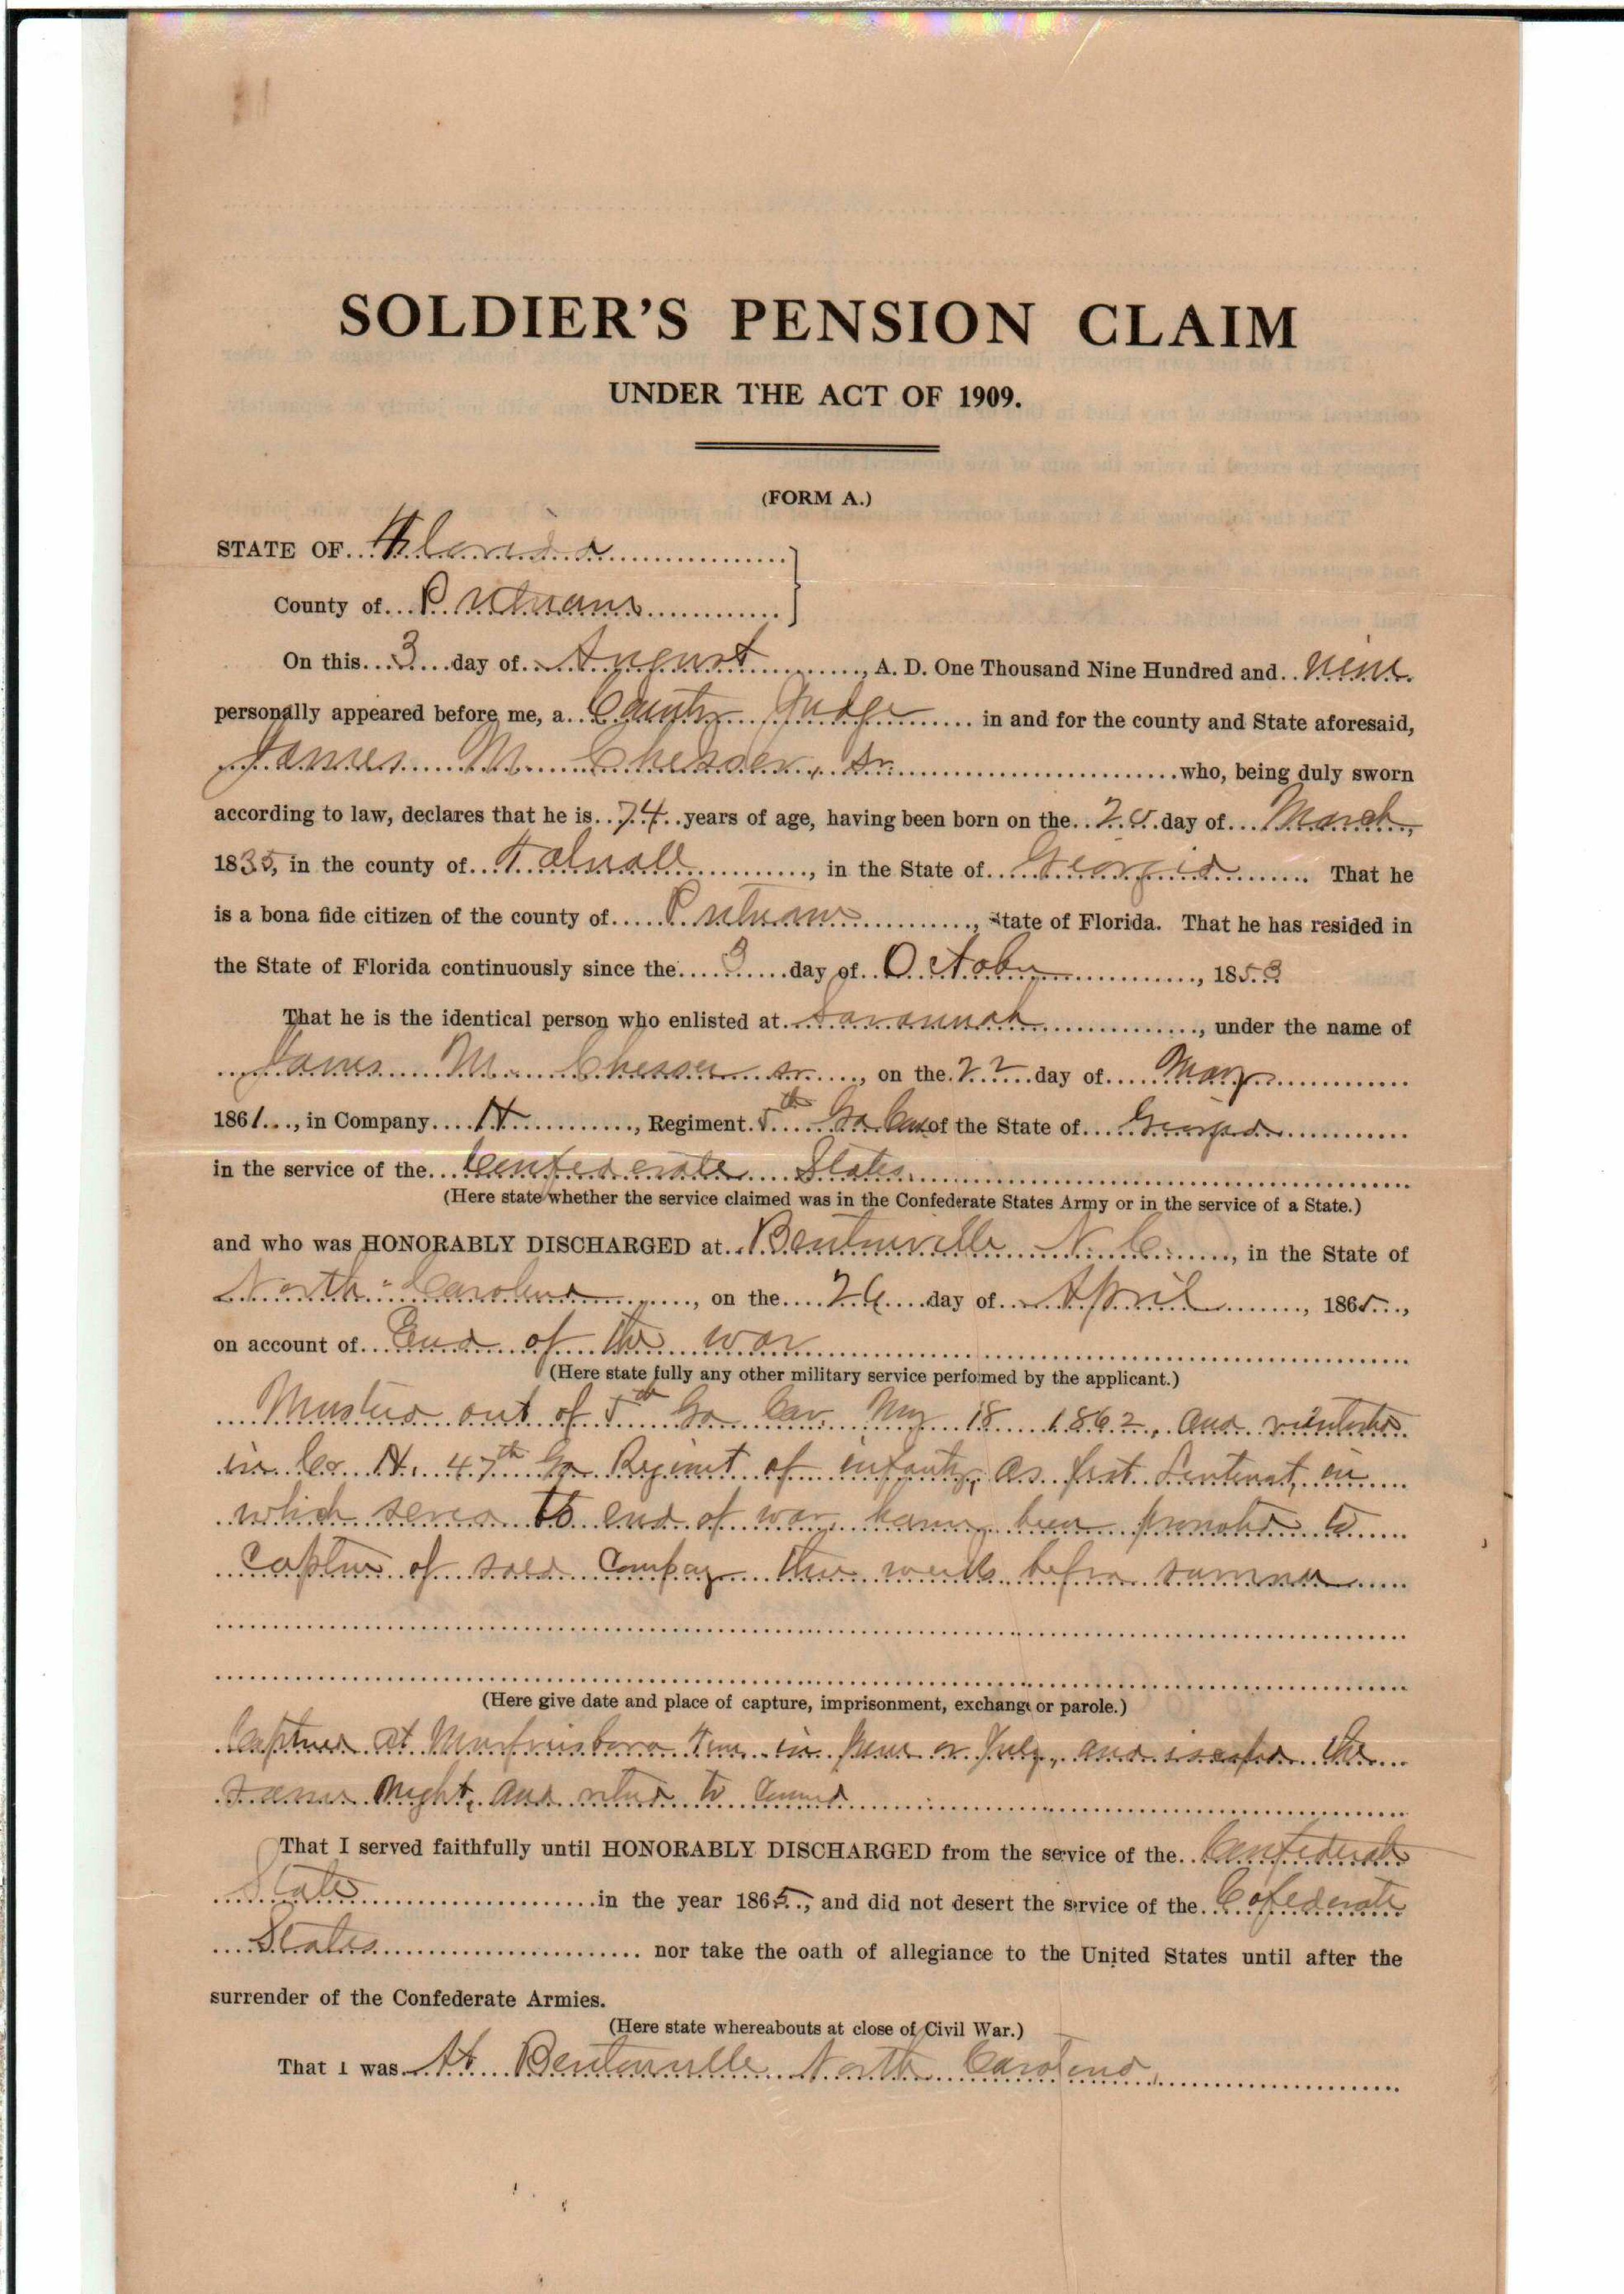 SOLDIER'S PENSION CLAIM
UNDER THE ACT OF 1909.
(FORM A.)
STATE OF Florida
County of Putnam
On this 3 day of August, A. D. One Thousand Nine Hundred and nine
personally appeared before me, a County Judge in and for the county and State aforesaid,
James M. Chesser, Sr. who, being duly sworn
according to law, declares that he is 74 years of age, having been born on the day of March,
1835, in the county of Tatnall, in the State of Georgia. That he
is a bona fide citizen of the county of Putnam, State of Florida. That he has resided in
the State of Florida continuously since the 3 day of October, 1853
That he is the identical person who enlisted at Savannah, under the name of
James M. Chesser sr., on the 22 day of May
1861, in Company H, Regiment 5th Ga Cav of the State of Georgia
in the service of the Confederate States.
(Here state whether the service claimed was in the Confederate States Army or in the service of a State.)
and who was HONORABLY DISCHARGED at Bentonville N. C., in the State of
North Carolina, on the 26 day of April, 1865,
on account of End of the war
(Here state fully any other military service performed by the applicant.)
Mustered out of 5th Ga Cav. May 18 1862, and reinlisted
in Co. H. 47th Ga Regiment of infantry, as first Lieutenant, in
which served to end of war, having been promoted to
Captain of said Company three weeks before surrender
(Here give date and place of capture, imprisonment, exchange or parole.)
Captured at Murfreesboro Tenn. in June or July, and escaped the
same night, and returned to command
That I served faithfully until HONORABLY DISCHARGED from the service of the Confederate
States in the year 1865, and did not desert the service of the Cofederate
States nor take the oath of allegiance to the United States until after the
surrender of the Confederate Armies.
(Here state whereabouts at close of Civil War.)
That I was At Bentonville North Carolina.